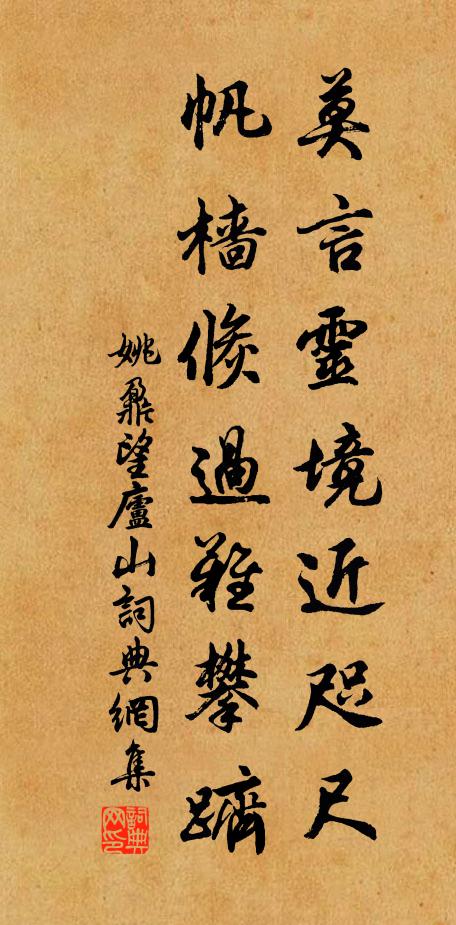 莫言靈境近咫尺
帆檣倏過難攀躋
姚鼐望廬山詞典網集
詞典网印